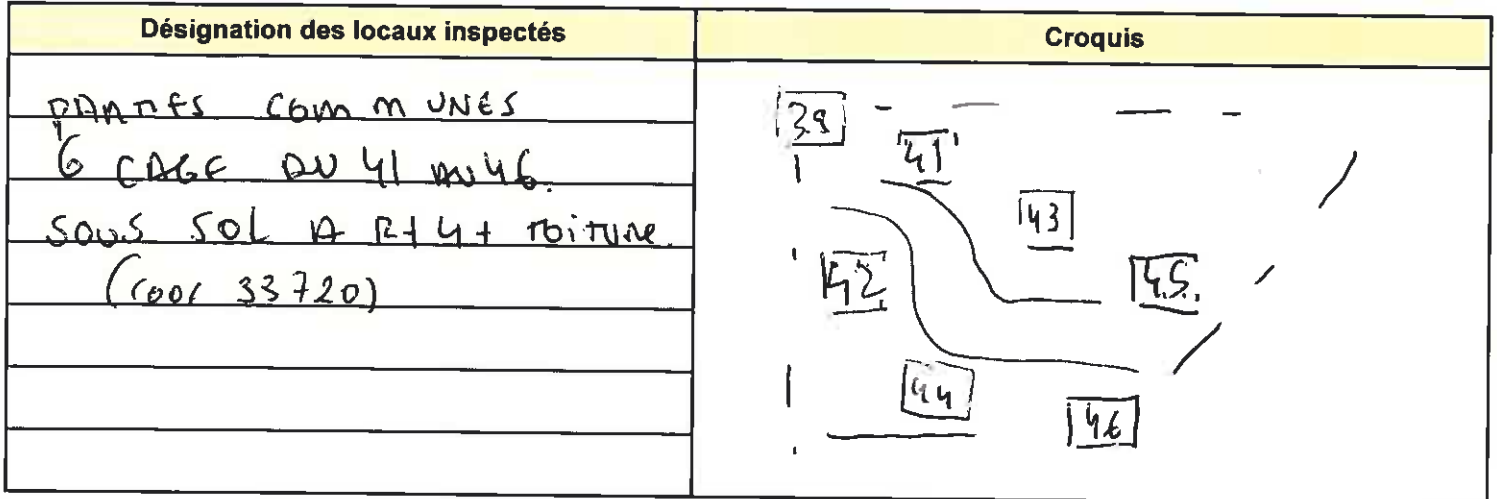 Désignation des locaux inspectés
Croquis
PARTIES COMMUNES
6 CAGE DU 41 AU 46.
SOUS SOL A R+4+ TOITURE.
(CODE 33720)
39
41
43
42
45
44
46